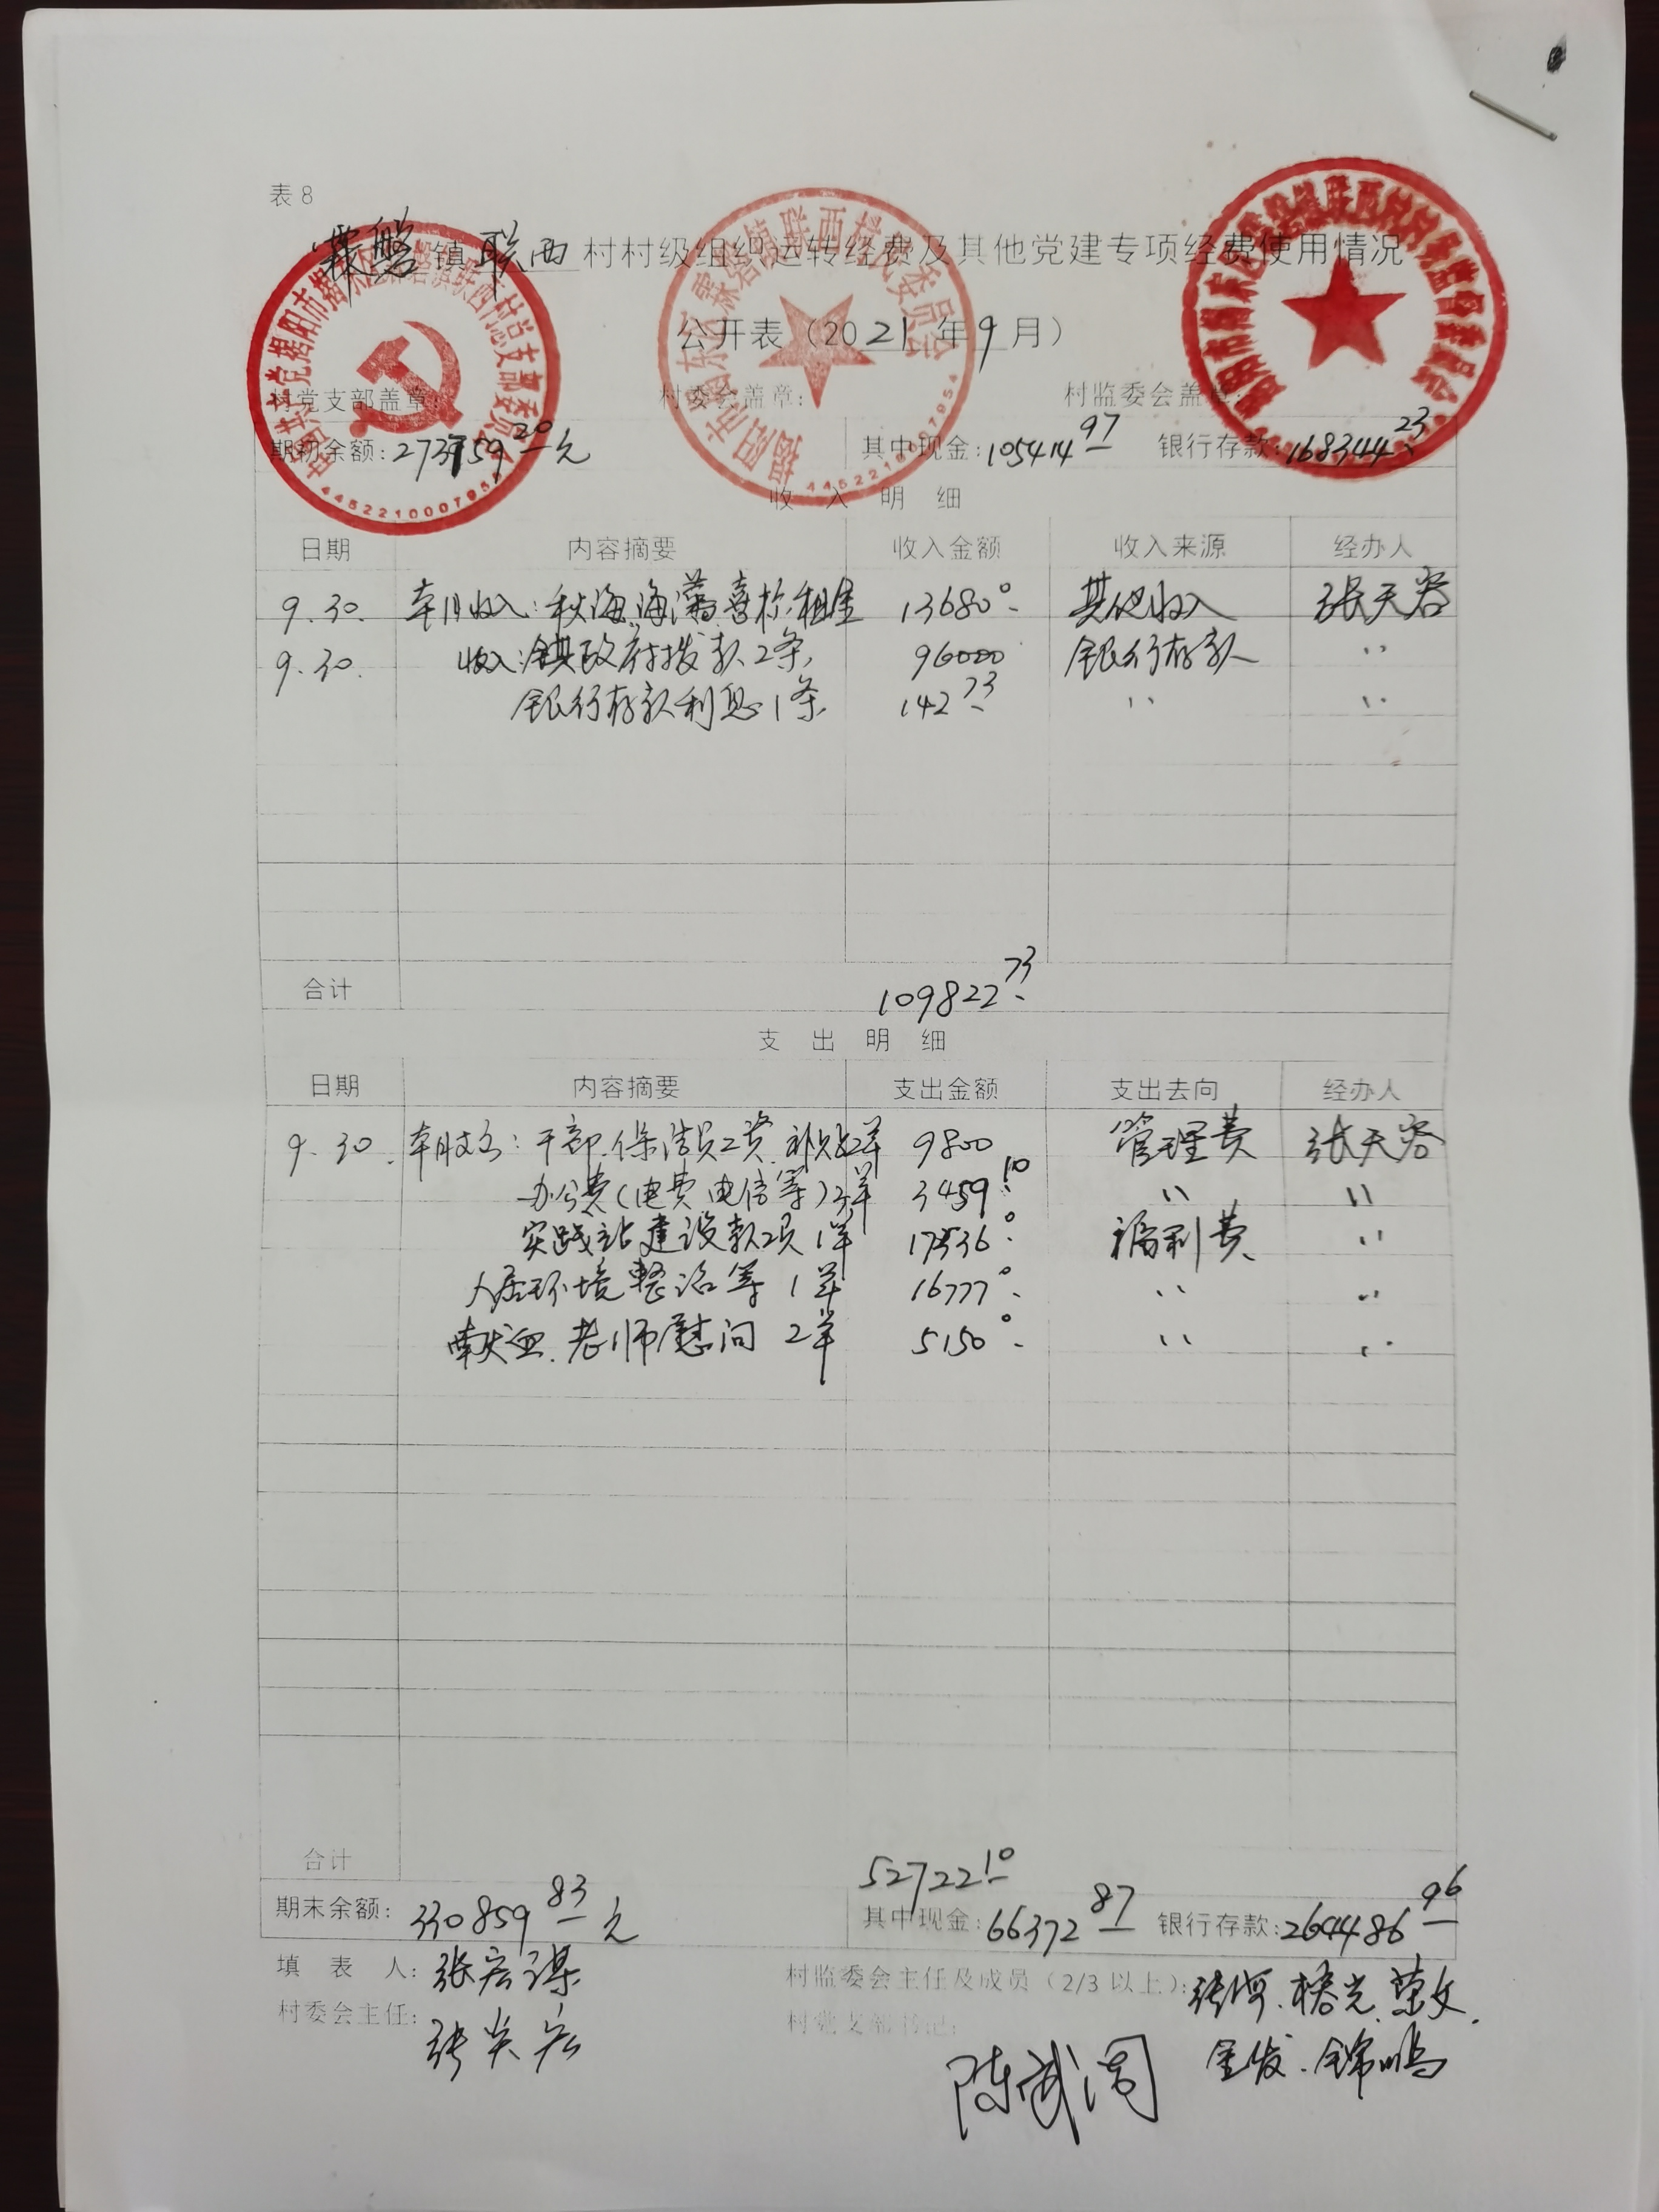 表8
霖磐镇联西村村级组织运转经费及其他党建专项经费使用情况
公开表（2021年9月）
村党支部盖章: 村委会盖章: 村监委会盖章:
期初余额: 273759.20元 其中现金: 105414.97 银行存款: 168344.23
收入明细
日期 内容摘要 收入金额 收入来源 经办人
9.30. 本月收入: 秋海、海藩、喜 租金 13680.0 其他收入 张天容
9.30. 收入: 镇政府拨款2条, 96000 银行存款 〃
银行存款利息1条 142.73 〃 〃
合计 109822.73
支出明细
日期 内容摘要 支出金额 支出去向 经办人
9.30. 本月支出: 干部、保洁员工资、补贴2单 9800 管理费 张天容
办公费(电费电信等)3单 3459.10 〃 〃
实践站建设款项1单 17536.0 福利费 〃
人居环境整治等1单 16777.0 〃 〃
献血、老师慰问2单 5150.0 〃 〃
合计 52722.10
期末余额: 330859.83元 其中现金: 66372.87 银行存款: 264486.96
填表人: 张宏谋 村监委会主任及成员（2/3以上）: 荣文.
村委会主任: 张炎宏 村党支部书记: 陈武 金发.锦鸣